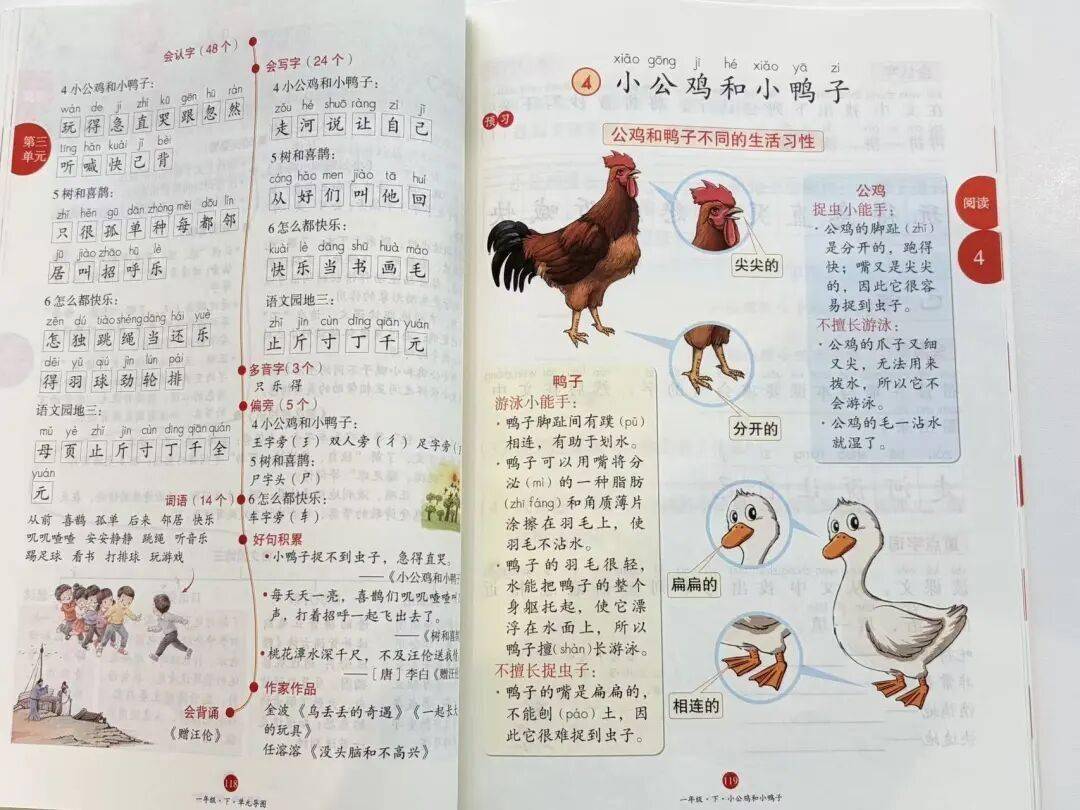 第三
单元
会认字(48个)
4 小公鸡和小鸭子:
wán de jí zhí kū gēn hū rán
玩 得 急 直 哭 跟 忽 然
tīng hǎn kuài jǐ bèi
听 喊 快 己 背
5 树和喜鹊:
zhǐ hěn gū dān zhòng měi dōu lín
只 很 孤 单 种 每 都 邻
jū jiào zhāo hū lè
居 叫 招 呼 乐
6 怎么都快乐:
zěn dú tiào shéng dāng hái yuè
怎 独 跳 绳 当 还 乐
děi yǔ qiú jìn lún pái
得 羽 球 劲 轮 排
语文园地三:
mǔ yè zhǐ jīn cùn dīng qiān quán
母 页 止 斤 寸 丁 千 全
yuán
元
词语(14个)
从前 喜鹊 孤单 后来 邻居 快乐
叽叽喳喳 安安静静 跳绳 听音乐
踢足球 看书 打排球 玩游戏
会背诵
《赠汪伦》
会写字(24个)
4 小公鸡和小鸭子:
zǒu hé shuō ràng zì jǐ
走 河 说 让 自 己
5 树和喜鹊:
cóng hǎo men jiào tā huí
从 好 们 叫 他 回
6 怎么都快乐:
kuài lè dāng shū huà máo
快 乐 当 书 画 毛
语文园地三:
zhǐ jīn cùn dīng qiān yuán
止 斤 寸 丁 千 元
多音字(3个)
只 乐 得
偏旁(5个)
4 小公鸡和小鸭子:
王字旁(王) 双人旁(彳) 足字旁(
5 树和喜鹊:
尸字头(尸)
6 怎么都快乐:
车字旁(车)
好句积累
·小鸭子捉不到虫子,急得直哭。
——《小公鸡和小鸭
·每天天一亮,喜鹊们叽叽喳喳
声,打着招呼一起飞出去了。
——《树和喜鹊
·桃花潭水深千尺,不及汪伦送我
——[唐]李白《赠汪
作家作品
金波 《乌丢丢的奇遇》《一起长
的玩具》
任溶溶 《没头脑和不高兴》
118
一年级·下·单元导图
xiǎo gōng jī hé xiǎo yā zi
4 小公鸡和小鸭子
预习
公鸡和鸭子不同的生活习性
尖尖的
分开的
公鸡
捉虫小能手:
·公鸡的脚趾(zhǐ)
是分开的,跑得
快;嘴又是尖尖
的,因此它很容
易捉到虫子。
不擅长游泳:
·公鸡的爪子又细
又尖,无法用来
拨水,所以它不
会游泳。
·公鸡的毛一沾水
就湿了。
阅读
4
鸭子
游泳小能手:
·鸭子脚趾间有蹼(pǔ)
相连,有助于划水。
·鸭子可以用嘴将分
泌(mì)的一种脂肪
(zhī fáng)和角质薄片
涂擦在羽毛上,使
羽毛不沾水。
·鸭子的羽毛很轻,
水能把鸭子的整个
身躯托起,使它漂
浮在水面上,所以
鸭子擅(shàn)长游泳。
不擅长捉虫子:
·鸭子的嘴是扁扁的,
不能刨(páo)土,因
此它很难捉到虫子。
扁扁的
相连的
119
一年级·下·小公鸡和小鸭子